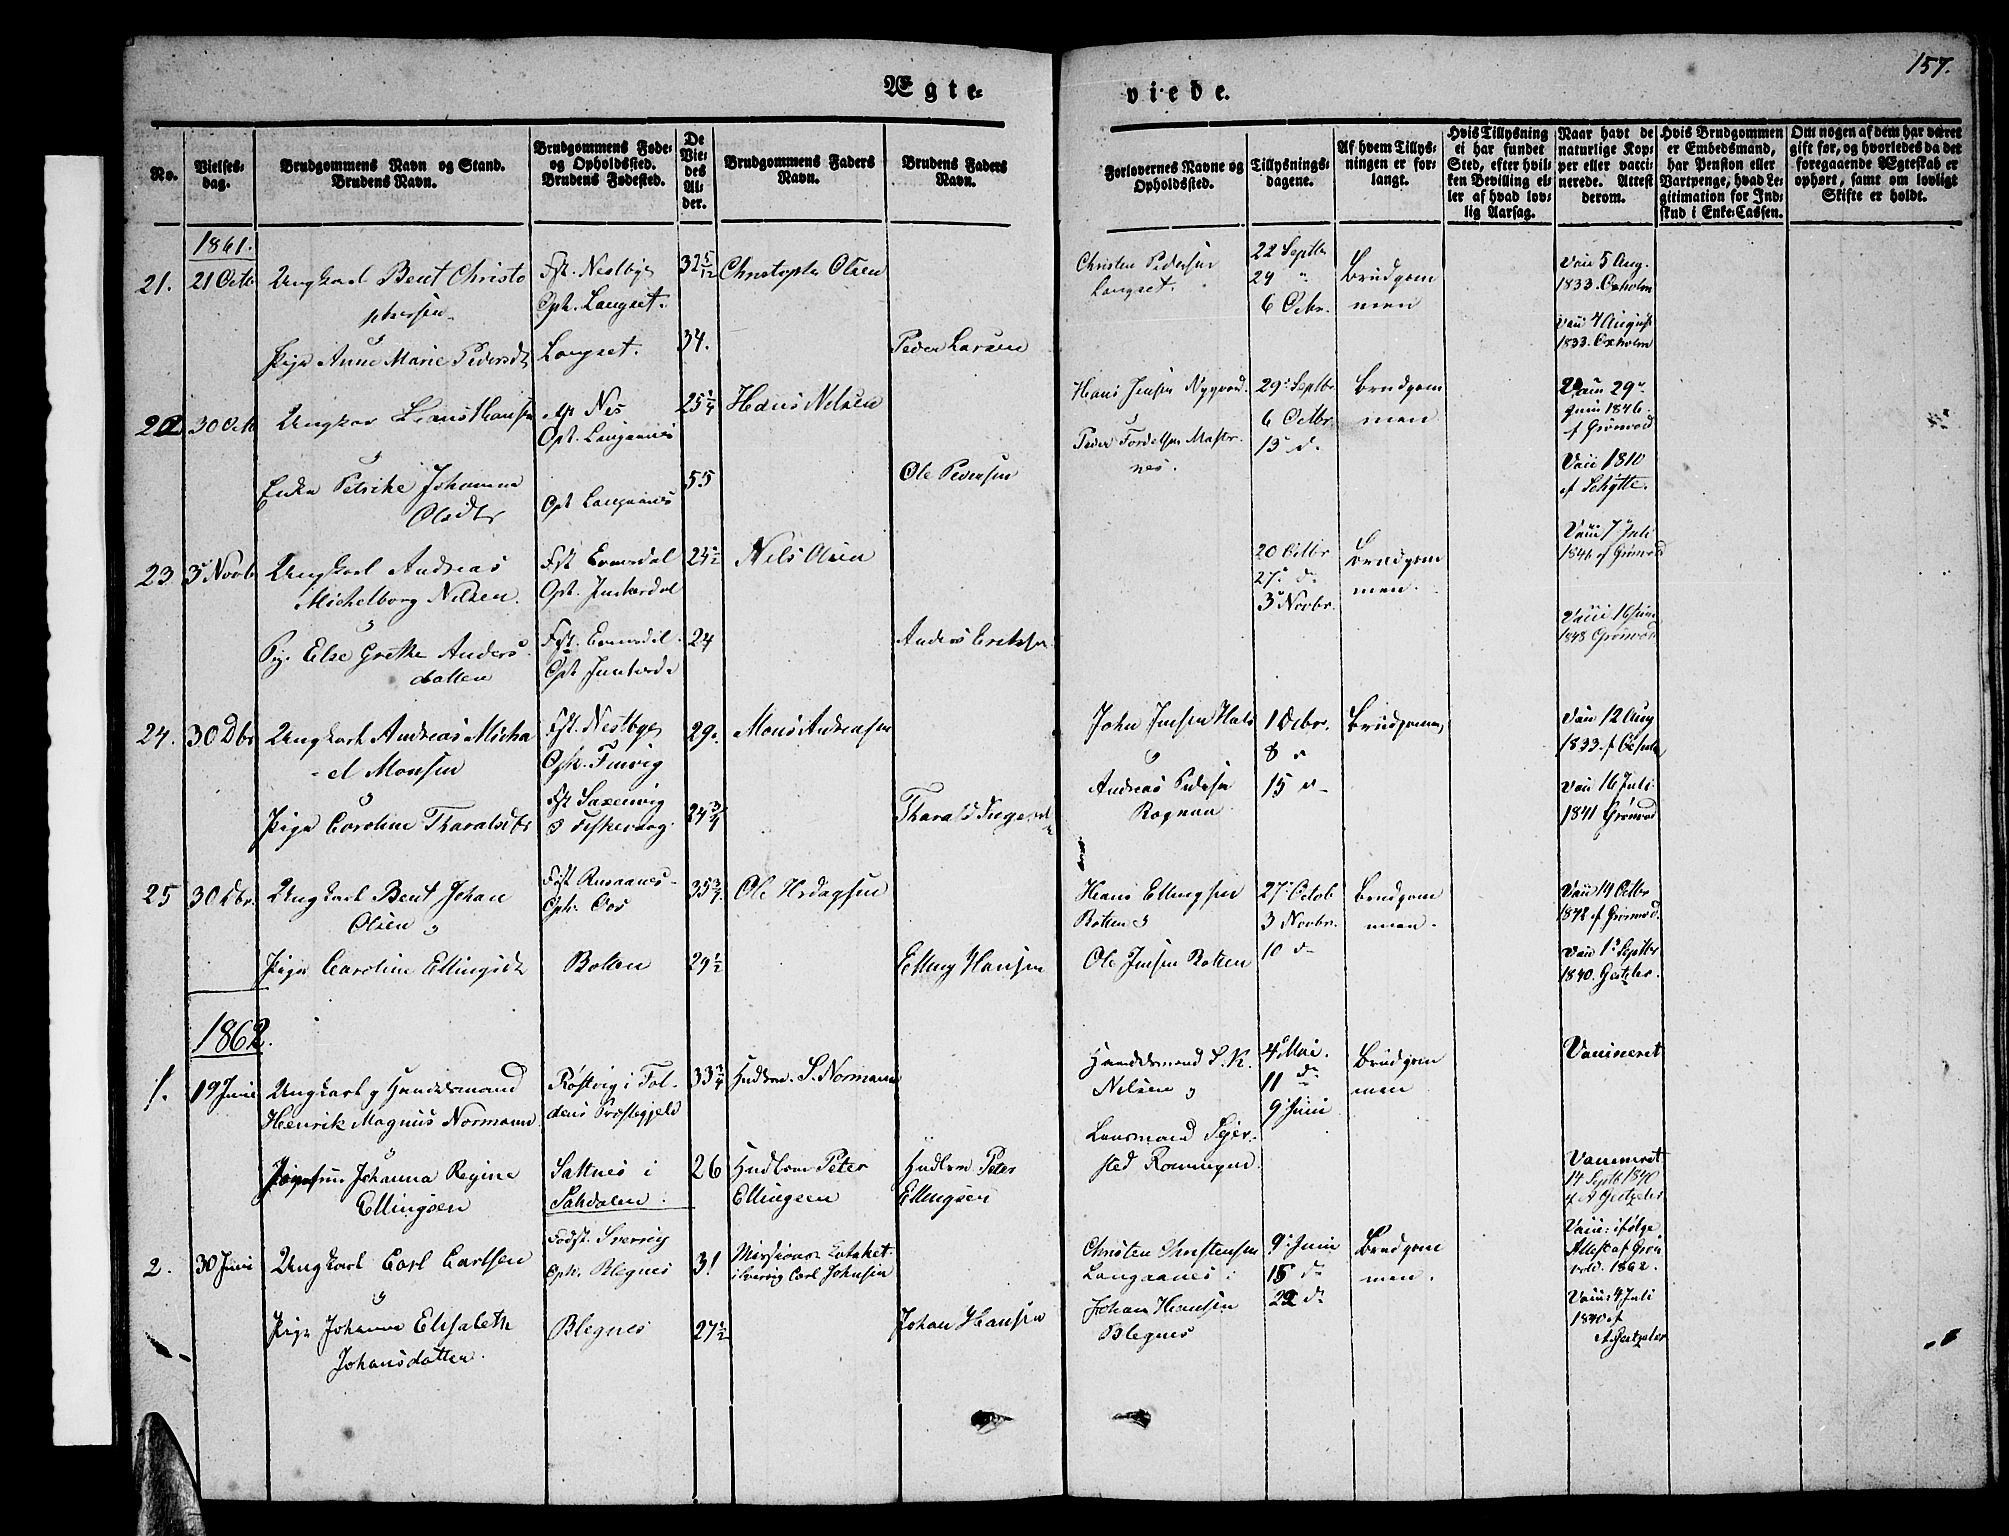 157.
Ægte-
viede.
No.
Vielses-
dag.
Brudgommens Navn og Stand.
Brudens Navn.
Brudgommens Føde-
og Opholdssted.
Brudens Fødested.
De
Vie-
des
Al-
der.
Brudgommens Faders
Navn.
Brudens Faders
Navn.
Forlovernes Navne og
Opholdssted.
Tillysnings-
dagene.
Af hvem Tillys-
ningen er for-
langt.
Hvis Tillysning
ei har fundet
Sted, efter hvil-
ken Bevilling el-
ler af hvad lov-
lig Aarsag.
Naar havt de
naturlige Kop-
per eller vacci-
nerede. Attest
derom.
Hvis Brudgommen
er Embedsmand,
har Pension eller
Vartpenge, hvad Le-
gitimation for Ind-
skud i Enke-Cassen.
Om nogen af dem har været
gift før, og hvorledes da det
foregaaende Ægteskab er
ophørt, samt om lovligt
Skifte er holdt.
1861.
21. 21 Octb Ungkarl Bent Christo
phersen
Fst. Nestbye
Oph. Langset.
32 5/12 Christopher Olsen
Christen Pedersen
Langset.
22 Septbr
29 "
6 Octbr.
Brudgom
men
Vaii 5 Aug.
1833. Oxholm
Pige Anne Marie Pedersdt Langset. 34. Peder Larsen
Vaii 4 August
1833. Oxholm
22 30 Octb Ungkar Hans Hansen
Fst Nes
Oph. Langaanes
25 1/4 Hans Nilsen
Hans Jensen Nygaard.
Peder
nes.
29 Septbr.
6 Octbr.
13 d.
Brudgom
men
Vaii 29
Juni 1846
f Grønvold
Enke Petrike Johanna
Olsdtr
Oph Langaanes
55
Ole Pedersen
Vaii 1810
f Schytte.
23. 3 Novbr Ungkarl Andreas
Michelborg Nilsen.
Fst Evensdal
Oph. Junkerdal
24 1/2 Nils Olsen
20 Octbr
27 d
3 Novbr.
Brudgom
men.
Vaii 7 Juli
1846 f Grønvold
Pig. Else Grethe Anders
datter
Fst. Evensdal
Oph Junkerda
24
Anders Eriksen
Vaii 16 Juni
1848 Grønvold
24. 30 Dbr Ungkarl Andreas Micha
el Monsen
Fst. Nestbye
Oph. Finvig
29. Mons Andreasen
John Jensen Hals
Andreas Pedersen
Rognan
1 Decbr.
8 "
15 "
Brudgommen
Vaii 12 Aug
1833. f Oxholm
Pige Caroline Tharalsdtr
Fst Saxenvig
24 3/4
Tharald
Vaii 16 Juli
1841 Grønvold
25 30 Dbr. Ungkarl Bent Johan
Olsen
Fst Rusaanes
Oph.
35 3/4. Ole
Hans Ellingsen
Botten
Ole Jensen Botten
27 Octob
3 Novbr.
10 d
Brudgom
men.
Vaii 19 Octbr
1842 f Grønvold.
Pige Caroline Ellingsdt Botten 29 1/2 Elling Hansen
Vaii 1 Septbr
1840. Gjetzler.
1862.
1. 19 Juni Ungkarl g Handelsmand
Henrik Magnus Normann
Røstvig i Fol-
dens Præstegjeld
33 3/4 Hndlsm. S. Normann
Handelsmand S. K.
Nilsen
Lensmand Sejer-
sted Rønningen.
4 Mai.
11 d
9 Juni
Brudgom
men
Vaccineret
Johanna Regine
Ellingsen
Saltnes i
Saltdalen.
26 Hndlsm Peter
Ellingsen
Hndlsm Peter
Ellingsen
Vaccineret
14 Septb 1840
af A Gjetzler
2. 30 Juni Ungkarl Carl Carlsen
Fødst. Sverrig
Oph. Blegnes
31 Missions
i Sverrig Carl Johnsen
Christen Christensen
Langaanes i
Johan Hansen
Blegnes
9 Juni
15 d
22 d
Brudgom
men.
Vaii: ifølge
Attest af Grøn
vold. 1862.
Pige Johanna Elisabeth
Johansdatter.
Blegnes
27 1/2
Johan Hansen
Vaii: 4 Juli
1840 af
A Gjetzler